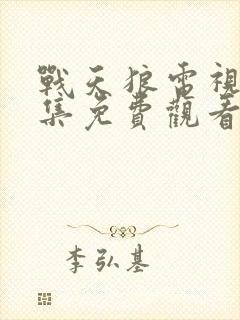 戰天狼電視
集免費觀看
李弘基